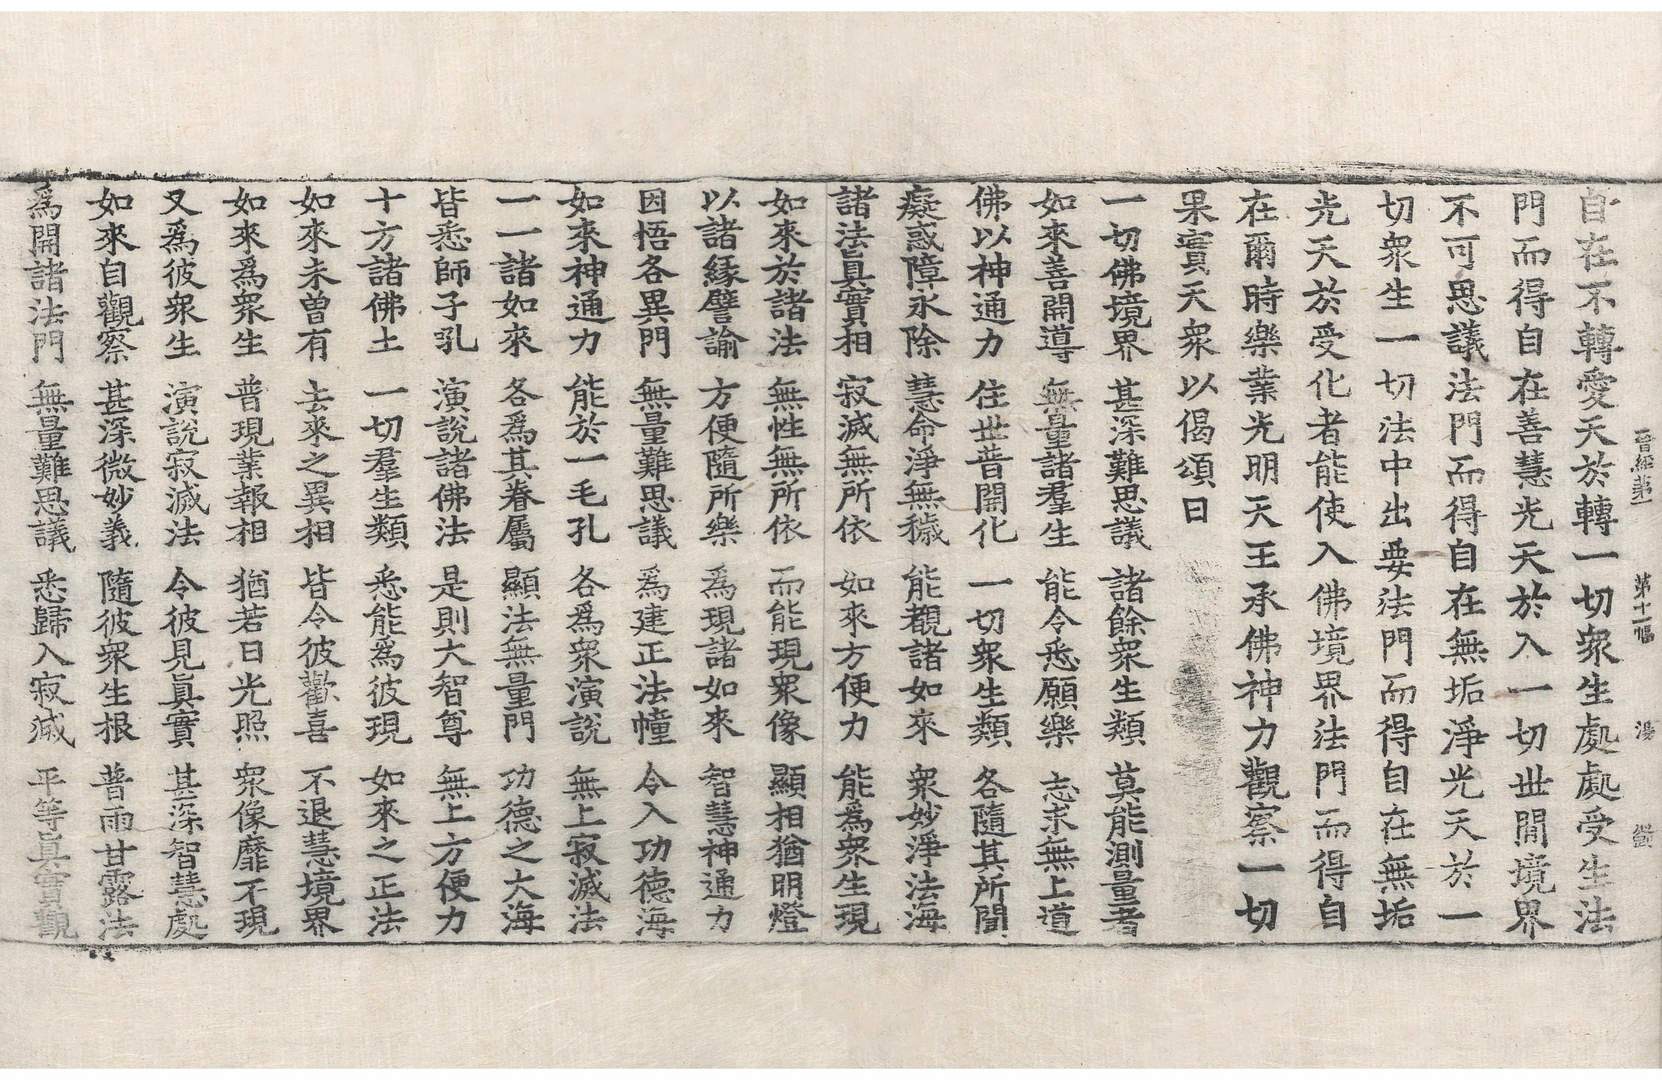 晉經第一 第十一幅 湯
自在不轉愛天於轉一切衆生處處受生法
門而得自在善慧光天於入一切世間境界
不可思議法門而得自在無垢淨光天於一
切衆生一切法中出要法門而得自在無垢
光天於受化者能使入佛境界法門而得自
在爾時樂業光明天王承佛神力觀察一切
果實天衆以偈頌曰
一切佛境界 甚深難思議 諸餘衆生類 莫能測量者
如來善開導 無量諸羣生 能令悉願樂 志求無上道
佛以神通力 住世普開化 一切衆生類 各隨其所聞
癡惑障永除 慧命淨無穢 能觀諸如來 衆妙淨法海
諸法眞實相 寂滅無所依 如來方便力 能爲衆生現
如來於諸法 無性無所依 而能現衆像 顯相猶明燈
以諸緣譬諭 方便隨所樂 爲現諸如來 智慧神通力
因悟各異門 無量難思議 爲建正法幢 令入功德海
如來神通力 能於一毛孔 各爲衆演說 無上寂滅法
一一諸如來 各爲其眷屬 顯法無量門 功德之大海
皆悉師子吼 演說諸佛法 是則大智尊 無上方便力
十方諸佛土 一切羣生類 悉能爲彼現 如來之正法
如來未曾有 去來之異相 皆令彼歡喜 不退慧境界
如來爲衆生 普現業報相 猶若日光照 衆像靡不現
又爲彼衆生 演說寂滅法 令彼見眞實 甚深智慧處
如來自觀察 甚深微妙義 隨彼衆生根 普雨甘露法
爲開諸法門 無量難思議 悉歸入寂滅 平等眞實觀